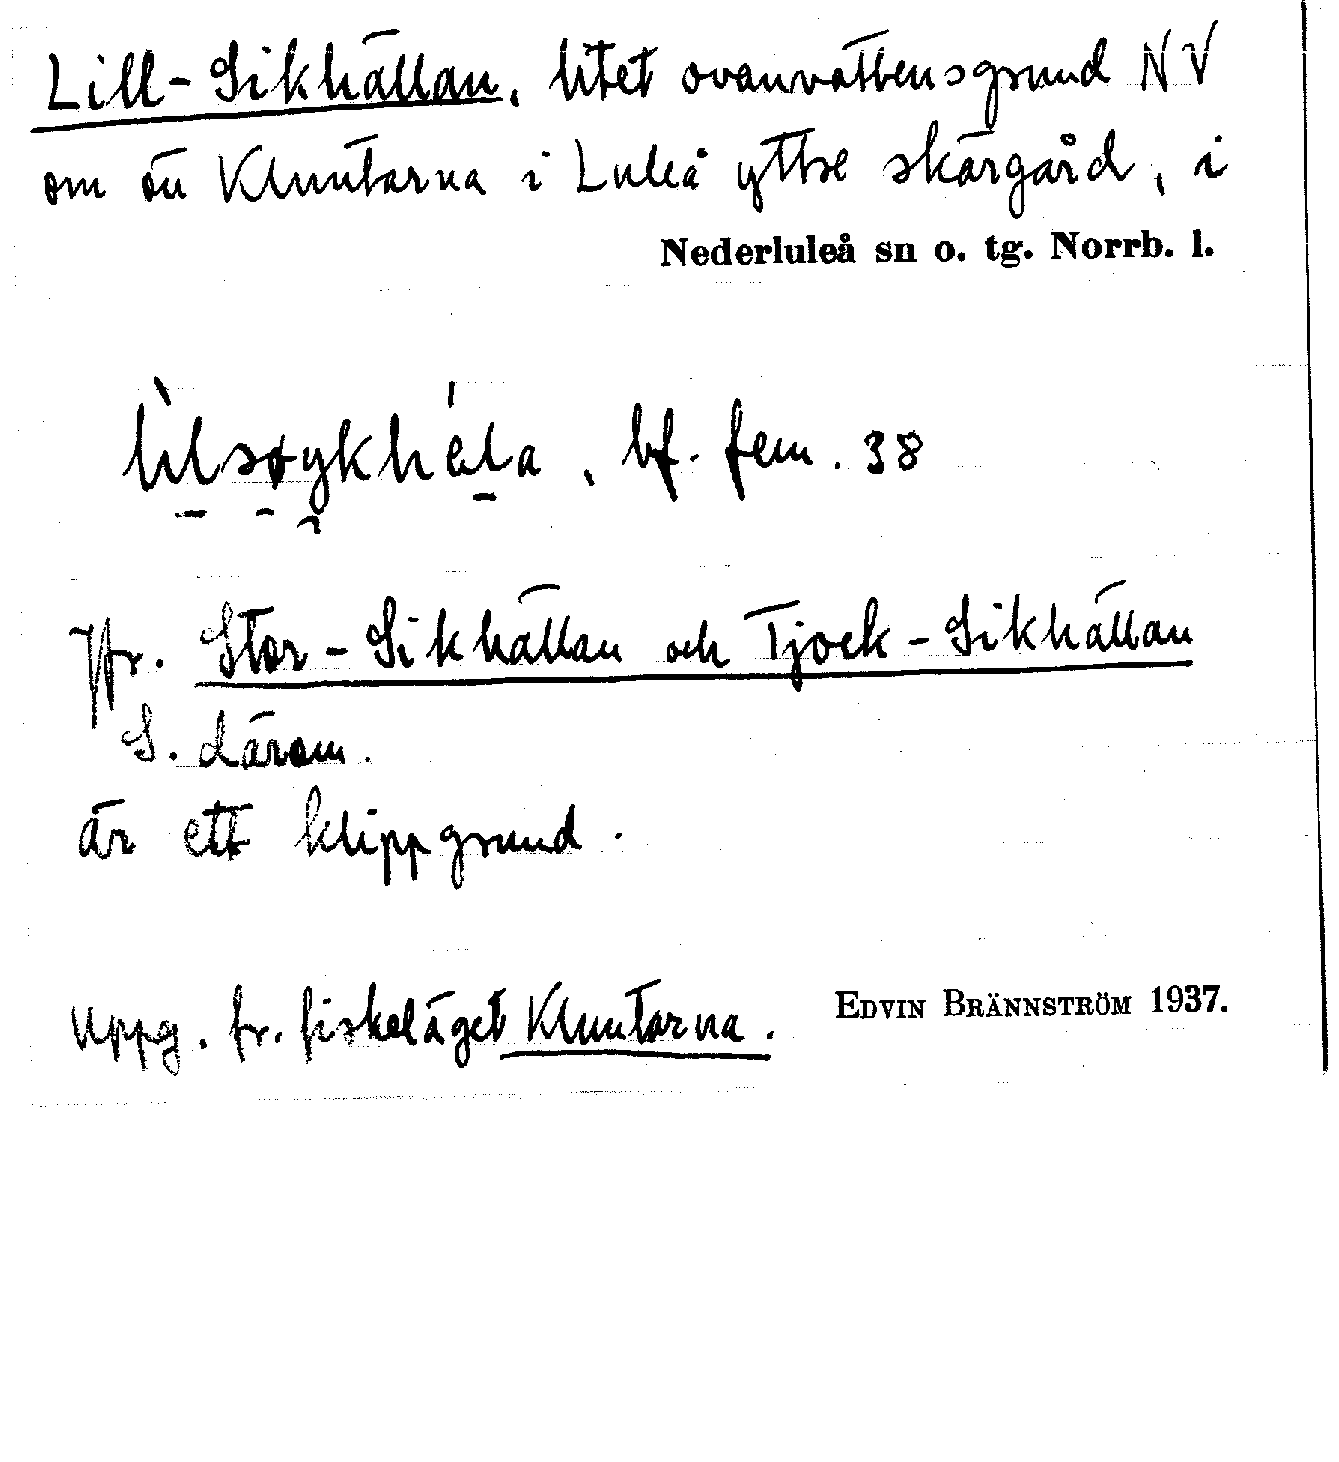 Lill-Sikhällan, litet ovanvattensgrund NV
om ön Kluntarna i Luleå yttre skärgård, i
Nederluleå sn o. tg. Norrb. l.
bf. fem. 38
Jfr. Stor-Sikhällan och Tjock-Sikhällan
S. därom.
är ett klippgrund.
Uppg. fr. fiskeläget Kluntarna. EDVIN BRÄNNSTRÖM 1937.